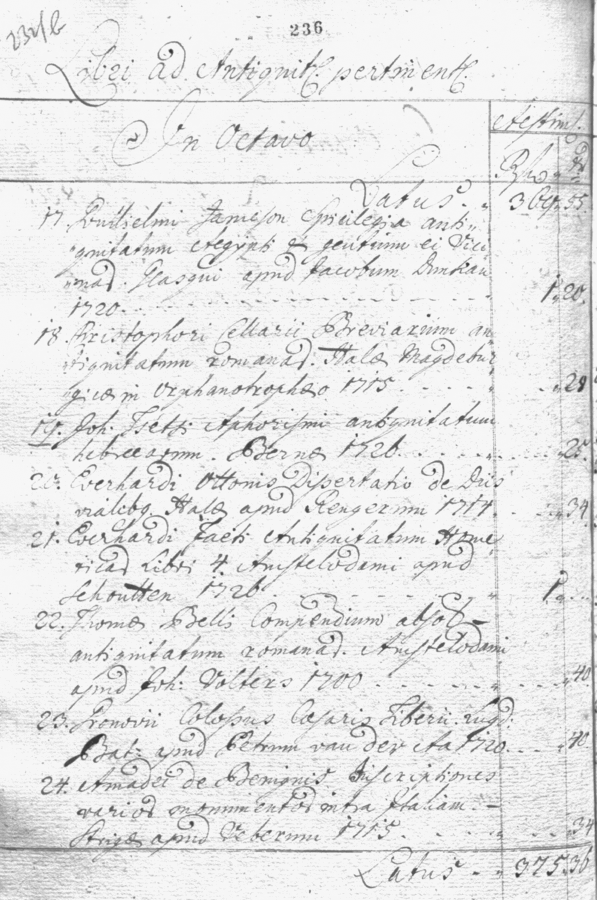 236
Libri ad Antiquit. pertinent.
In Octavo
Aestim.
Latus 369. 55
17. Guilielmi Jameson Spicilegia anti-
quitatum Aegypti & gentium ei Vici
nad. Glasgui apud Jacobum Dunkan
1720. 1. 20.
18. Christophori Cellarii Breviarium an
tiquitatum romanad. Halæ Magdebur
gicæ in Orphanotropheo 1715 28
19. Joh. Aphorismi antiquitatum
hebræarum. Bernæ 25.
20. Everhardi Ottonis Dissertatio de Diis
vialibg. Halæ apud Rengerum 1714. 34
21. Everhardi Feiti Antiquitatum Home
ricad Libri 4. Amstelodami apud
Schoutten 1726. 1.
22. Thomæ Bells Compendium
antiquitatum romanad. Amstelodami
apud Joh. Wolters 1700 40
23. Gronovii Colossus Cæsaris Tiberii. Lugd.
Bat. apud Petrum van der Aa 1720. 40
24. Amadei de Benignis Inscriptiones
varios monumentod intra Italiam.
apud Weberum 1715 34
Latus 375. 36